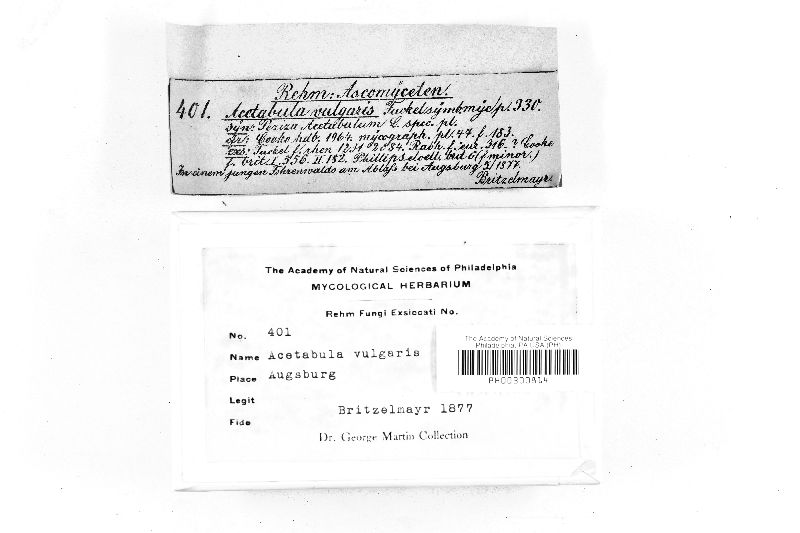 Rehm: Ascomyceten.
401. Acetabula vulgaris Fuckel symb. myc. p. 330.
syn: Peziza Acetabulum L. spec. pl.
Cooke hdb. 1964. mycograph. pl. 44. f. 183.
exs: Fuckel f. rhen 1231 2084. Rabh. f. eur. 316. ? Cooke
f. brit. I. 556. II 182. Phillips elvell. brit 6 (f. minor.)
In einem jungen Föhrenwalde am Ablass bei Augsburg 5/1877.
Britzelmayr
The Academy of Natural Sciences of Philadelphia
MYCOLOGICAL HERBARIUM
Rehm Fungi Exsiccati No.
No. 401
Name Acetabula vulgaris
Place Augsburg
Legit
Britzelmayr 1877
Fide
Dr. George Martin Collection
The Academy of Natural Sciences
Philadelphia, PA USA (PH)
PH00300814